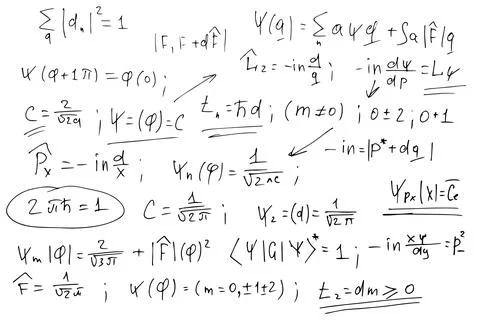 ∑_q |d_n|² = 1   |F, F + dF̂|   Ψ(q) = ∑_n aΨq + ∫a|F̂|q
Ψ(φ+1π) = φ(0);   L̂_z = -in d/q;   -in dψ/dp = Lψ
C = 2/√2q; Ψ = (φ) = C   t_n = ħd; (m≠0); 0±2; 0+1
P̂_x = -in d/x;   Ψ_n(φ) = 1/√2πc;   -in = |p* + dq|
2πħ = 1   C = 1/√2π;   Ψ_2 = (d) = 1/√2π   Ψ_px|x| = C̄e
Ψ_m|φ| = 2/√3π + |F̂|(φ)²   ⟨Ψ|G|Ψ⟩* = 1; -in xψ/dy = p²
F̂ = 1/√2π; Ψ(φ) = (m = 0, ±1±2); t_2 = dm ≥ 0